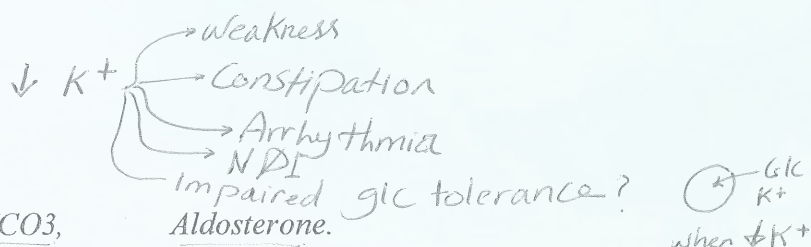 Weakness
↓ K+
Constipation
Arrhythmia
NDI
Impaired glc tolerance?
Glc
K+
CO3, Aldosterone.
when ↓K+